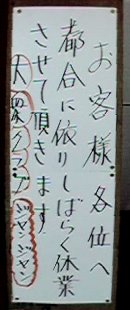 お客様各位へ
都合に依りしばらく休業
させて頂きます
クラブ ジャンジャン